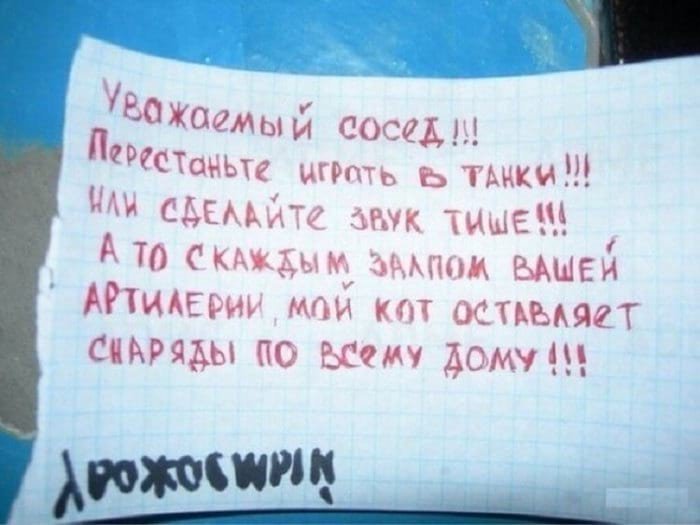 Уважаемый сосед!!!
Перестаньте играть в ТАНКИ!!!
ИЛИ СДЕЛАЙТе ЗВУК ТИШЕ!!!
А ТО С КАЖДЫМ ЗАЛПОМ ВАШЕЙ
АРТИЛЕРИИ, МОЙ КОТ ОСТАВЛЯеТ
СНАРЯДЫ ПО ВСеМУ ДОМУ!!!